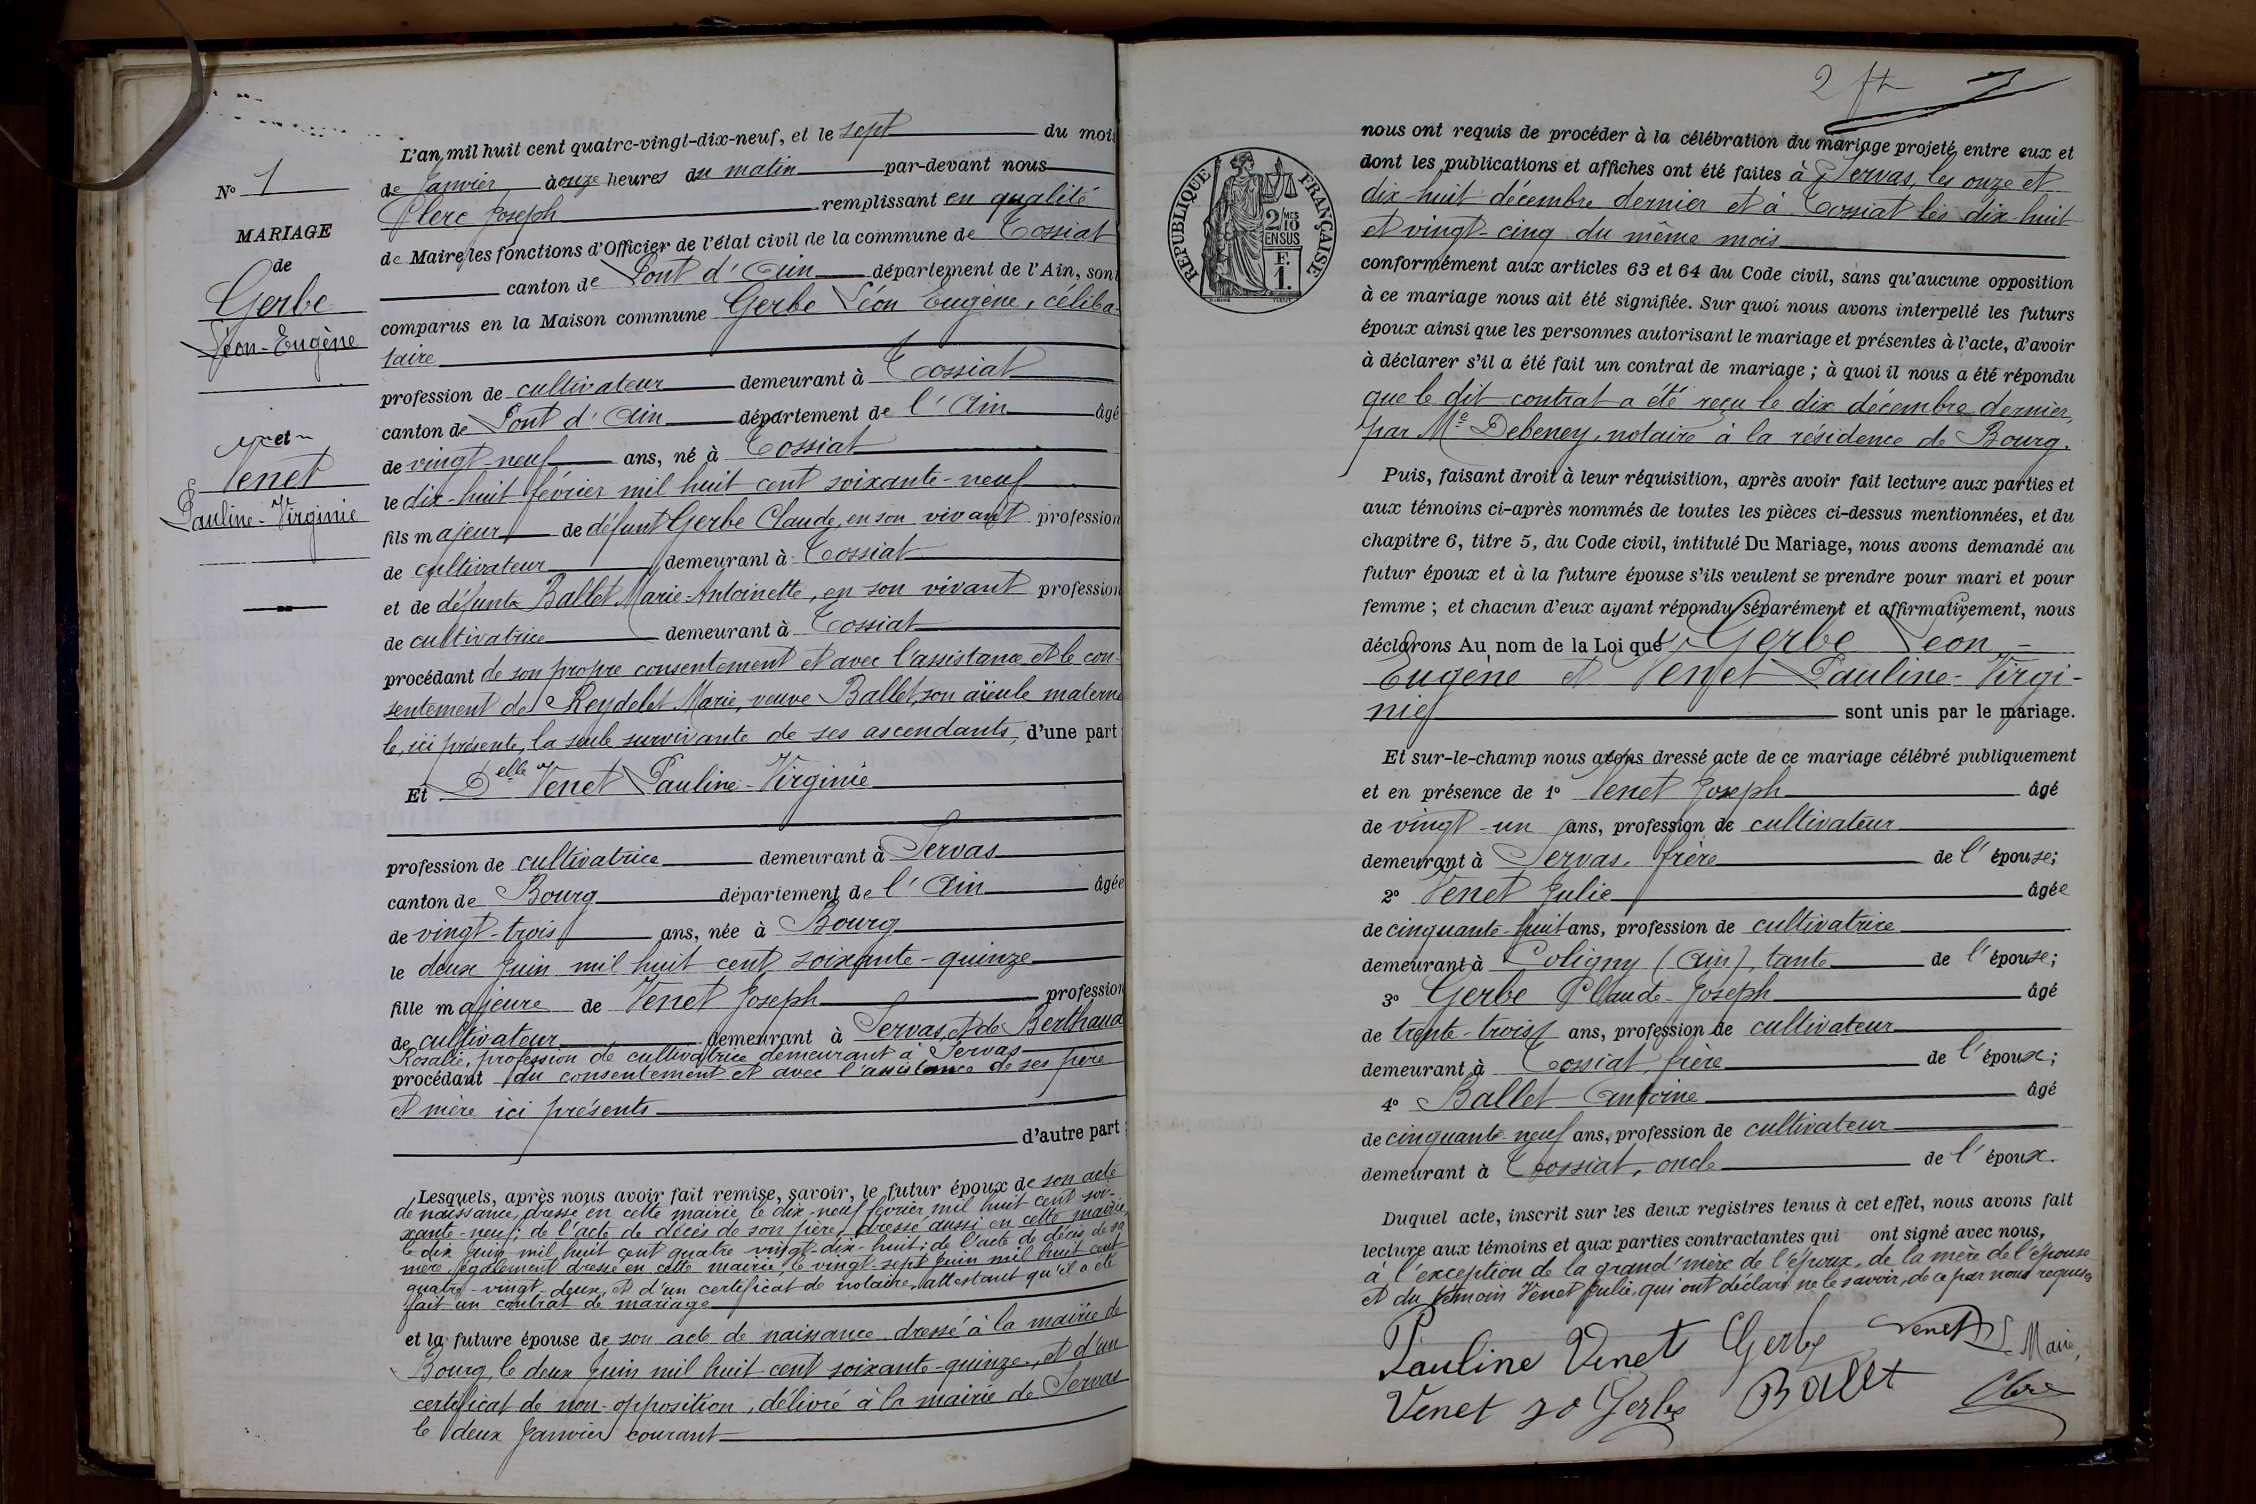 N° 1
MARIAGE
de
Gerbe
Léon-Eugène
et
Venet
Pauline-Virginie
L'an mil huit cent quatre-vingt-dix-neuf, et le sept du mois
de Janvier à onze heures du matin par-devant nous
Clerc Joseph remplissant en qualité
de Maire les fonctions d'Officier de l'état civil de la commune de Tossiat
canton de Pont d'Ain département de l'Ain, sont
comparus en la Maison commune Gerbe Léon Eugène, céliba-
taire
profession de cultivateur demeurant à Tossiat
canton de Pont d'Ain département de l'Ain âgé
de vingt-neuf ans, né à Tossiat
le dix-huit février mil huit cent soixante-neuf
fils majeur de défunt Gerbe Claude, en son vivant profession
de cultivateur demeurant à Tossiat
et de défunte Ballet Marie-Antoinette, en son vivant profession
de cultivatrice demeurant à Tossiat
procédant de son propre consentement et avec l'assistance et le con-
sentement de Reydelet Marie, veuve Ballet, son aïeule materne
le, ici présente, la seule survivante de ses ascendants, d'une part;
Et Delle Venet Pauline-Virginie
profession de cultivatrice demeurant à Servas
canton de Bourg département de l'Ain âgée
de vingt-trois ans, née à Bourg
le deux Juin mil huit cent soixante-quinze
fille majeure de Venet Joseph profession
de cultivateur demeurant à Servas, et de Berthaud
Rosalie, profession de cultivatrice demeurant à Servas
procédant du consentement et avec l'assistance de ses père
et mère ici présents
d'autre part;
Lesquels, après nous avoir fait remise, savoir, le futur époux de son acte
de naissance, dressé en cette mairie le dix-neuf février mil huit cent soi-
xante-neuf; de l'acte de décès de son père, dressé aussi en cette mairie
le dix Juin mil huit cent quatre vingt-dix-huit; de l'acte de décès de sa
mère, également dressé en cette mairie le vingt-sept Juin mil huit cent
quatre-vingt-deux, et d'un certificat de notaire, attestant qu'il a été
fait un contrat de mariage
et la future épouse de son acte de naissance dressé à la mairie de
Bourg le deux Juin mil huit cent soixante-quinze, et d'un
certificat de non-opposition, délivré à la mairie de Servas
le deux Janvier courant
2 ft
RÉPUBLIQUE FRANÇAISE
2/10
EN SUS
F.
1.
nous ont requis de procéder à la célébration du mariage projeté entre eux et
dont les publications et affiches ont été faites à Servas, les onze et
dix-huit décembre dernier et à Tossiat les dix huit
et vingt-cinq du même mois
conformément aux articles 63 et 64 du Code civil, sans qu'aucune opposition
à ce mariage nous ait été signifiée. Sur quoi nous avons interpellé les futurs
époux ainsi que les personnes autorisant le mariage et présentes à l'acte, d'avoir
à déclarer s'il a été fait un contrat de mariage; à quoi il nous a été répondu
que le dit contrat a été reçu le dix décembre dernier,
par Me Debeney, notaire à la résidence de Bourg.
Puis, faisant droit à leur réquisition, après avoir fait lecture aux parties et
aux témoins ci-après nommés de toutes les pièces ci-dessus mentionnées, et du
chapitre 6, titre 5, du Code civil, intitulé Du Mariage, nous avons demandé au
futur époux et à la future épouse s'ils veulent se prendre pour mari et pour
femme; et chacun d'eux ayant répondu séparément et affirmativement, nous
déclarons Au nom de la Loi que Gerbe Léon-
Eugène et Venet Pauline-Virgi-
nie sont unis par le mariage.
Et sur-le-champ nous avons dressé acte de ce mariage célébré publiquement
et en présence de 1° Venet Joseph âgé
de vingt-un ans, profession de cultivateur
demeurant à Servas, frère de l'épouse;
2° Venet Julie âgée
de cinquante-huit ans, profession de cultivatrice
demeurant à Coligny (Ain), tante de l'épouse;
3° Gerbe Claude-Joseph âgé
de trente-trois ans, profession de cultivateur
demeurant à Tossiat, frère de l'époux;
4° Ballet Antoine âgé
de cinquante-neuf ans, profession de cultivateur
demeurant à Tossiat, oncle de l'époux.
Duquel acte, inscrit sur les deux registres tenus à cet effet, nous avons fait
lecture aux témoins et aux parties contractantes qui ont signé avec nous,
à l'exception de la grand'mère de l'époux, de la mère de l'épouse
et du témoin Venet Julie, qui ont déclaré ne le savoir, de ce par nous requises
Pauline Venet Gerbe Venet Le Maire,
Venet Jo Gerbe Ballet Clerc